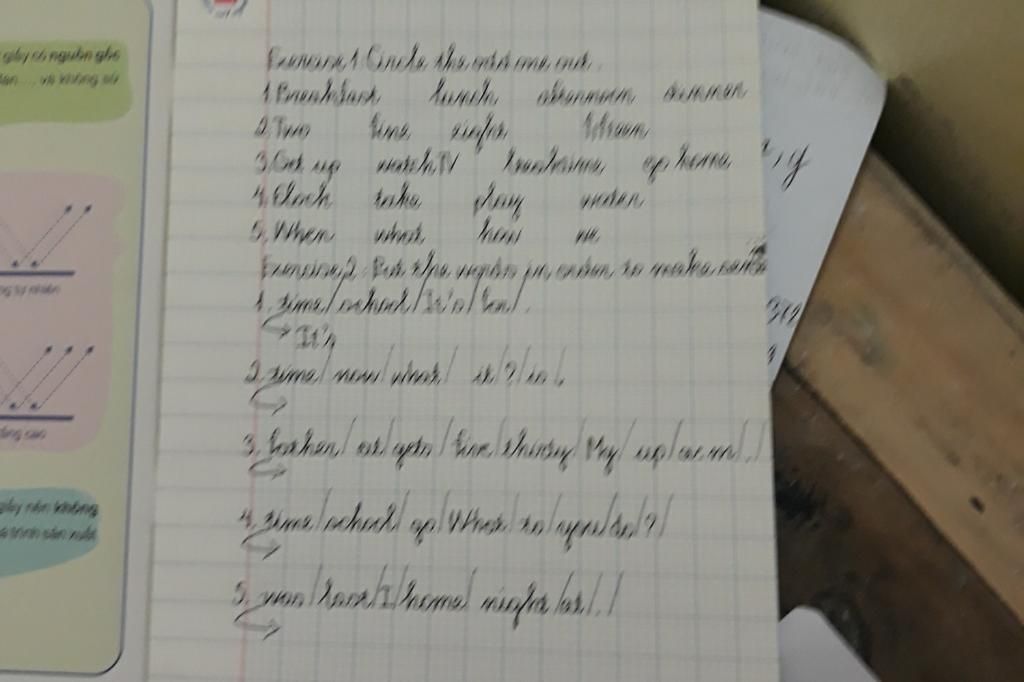 giấy có nguồn gốc
và không sử
ng tự nhiên
giấy nên không
á trình sản xuất
Exercise 1 Circle the odd one out.
1. Breakfast lunch afternoon dinner
2. Two five eight
3. Get up watch TV breaktime go home
4. Clock take play
5. When what how we
Exercise 2: Put the words in order to make
1. time/school/It's/for/.
It's
2. time/now/what/ it/?/is/.
3. father/ at/gets/ five/thirty/ My/ up/a.m/./
4. time/school/ go/What/ to/you/do/?/
5. was/ /I/home/ night/at/./